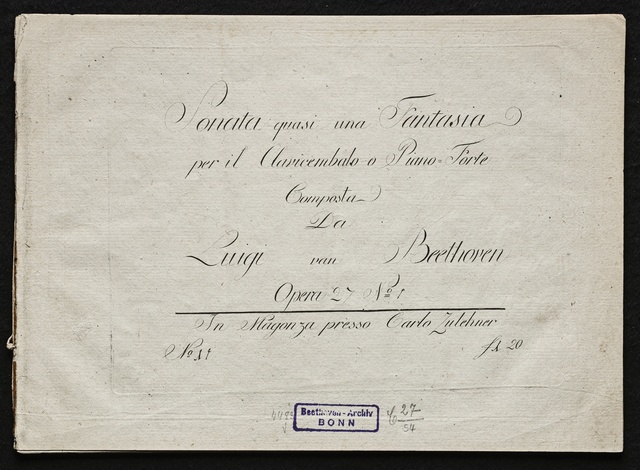 Sonata quasi una Fantasia
per il Clavicembalo o Piano=Forte
Composta
Da
Luigi van Beethoven
Opera 27 No 1
In Magonza presso Carlo Zulehner
No. 1 f 1. 20
Beethoven-Archiv
BONN
27
54